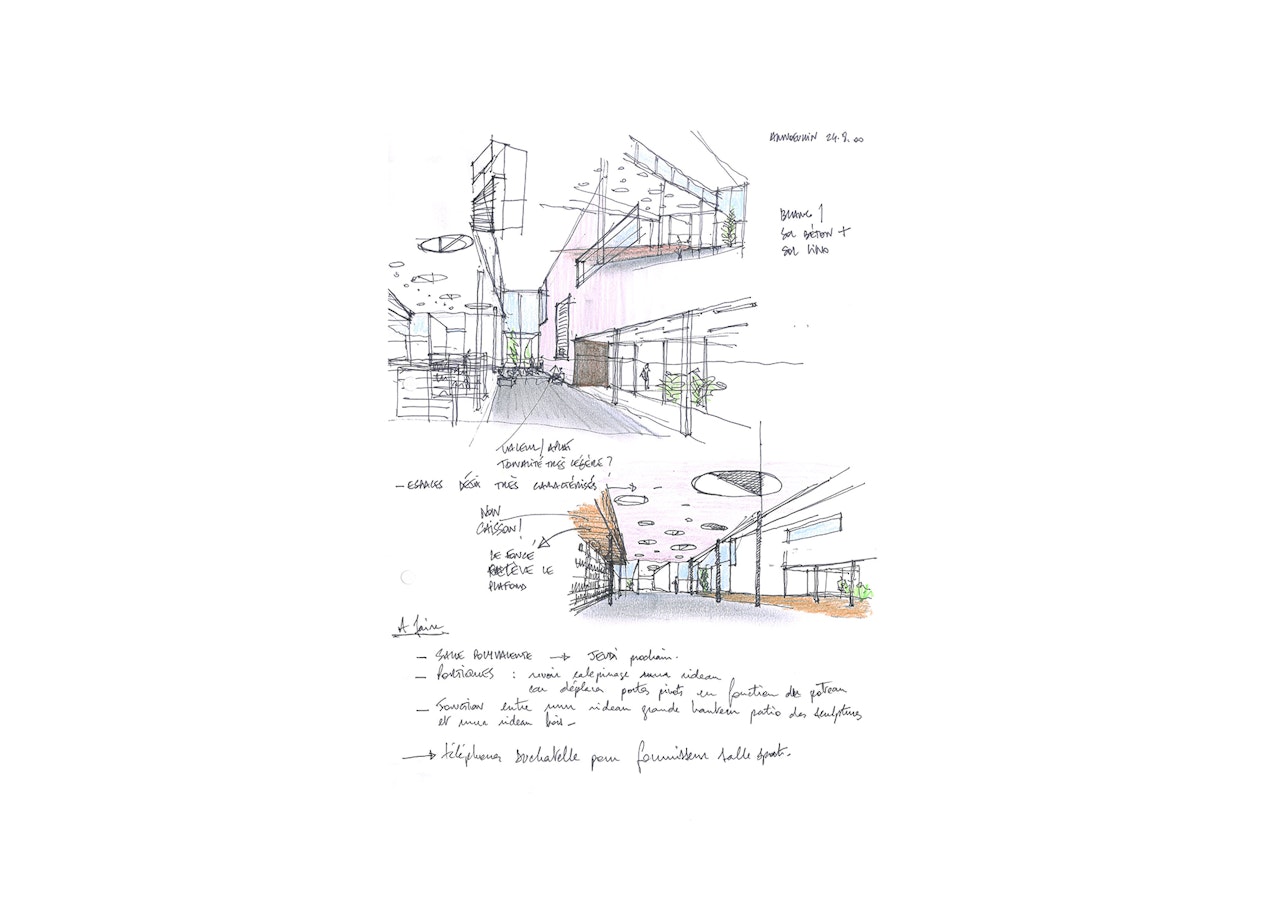 ANNOEULLIN 24.9.00
BLANC
SOL BÉTON +
SOL LINO
VALEUR/
TONALITÉ TRÈS LÉGÈRE ?
— ESPACES DÉJÀ TRÈS CARACTÉRISÉS !
NON
CAISSON !
LE FONCÉ
RELÈVE LE
PLAFOND
A faire
— SALLE POLYVALENTE → JEUDI prochain.
— PORTIQUES : revoir calepinage murs rideau
car déplacer portes pivots en fonction des poteaux
— Jonction entre murs rideau grande hauteur patio des sculptures
et murs rideau bois —
→ téléphoner Duchatelle pour fournisseur salle sport.